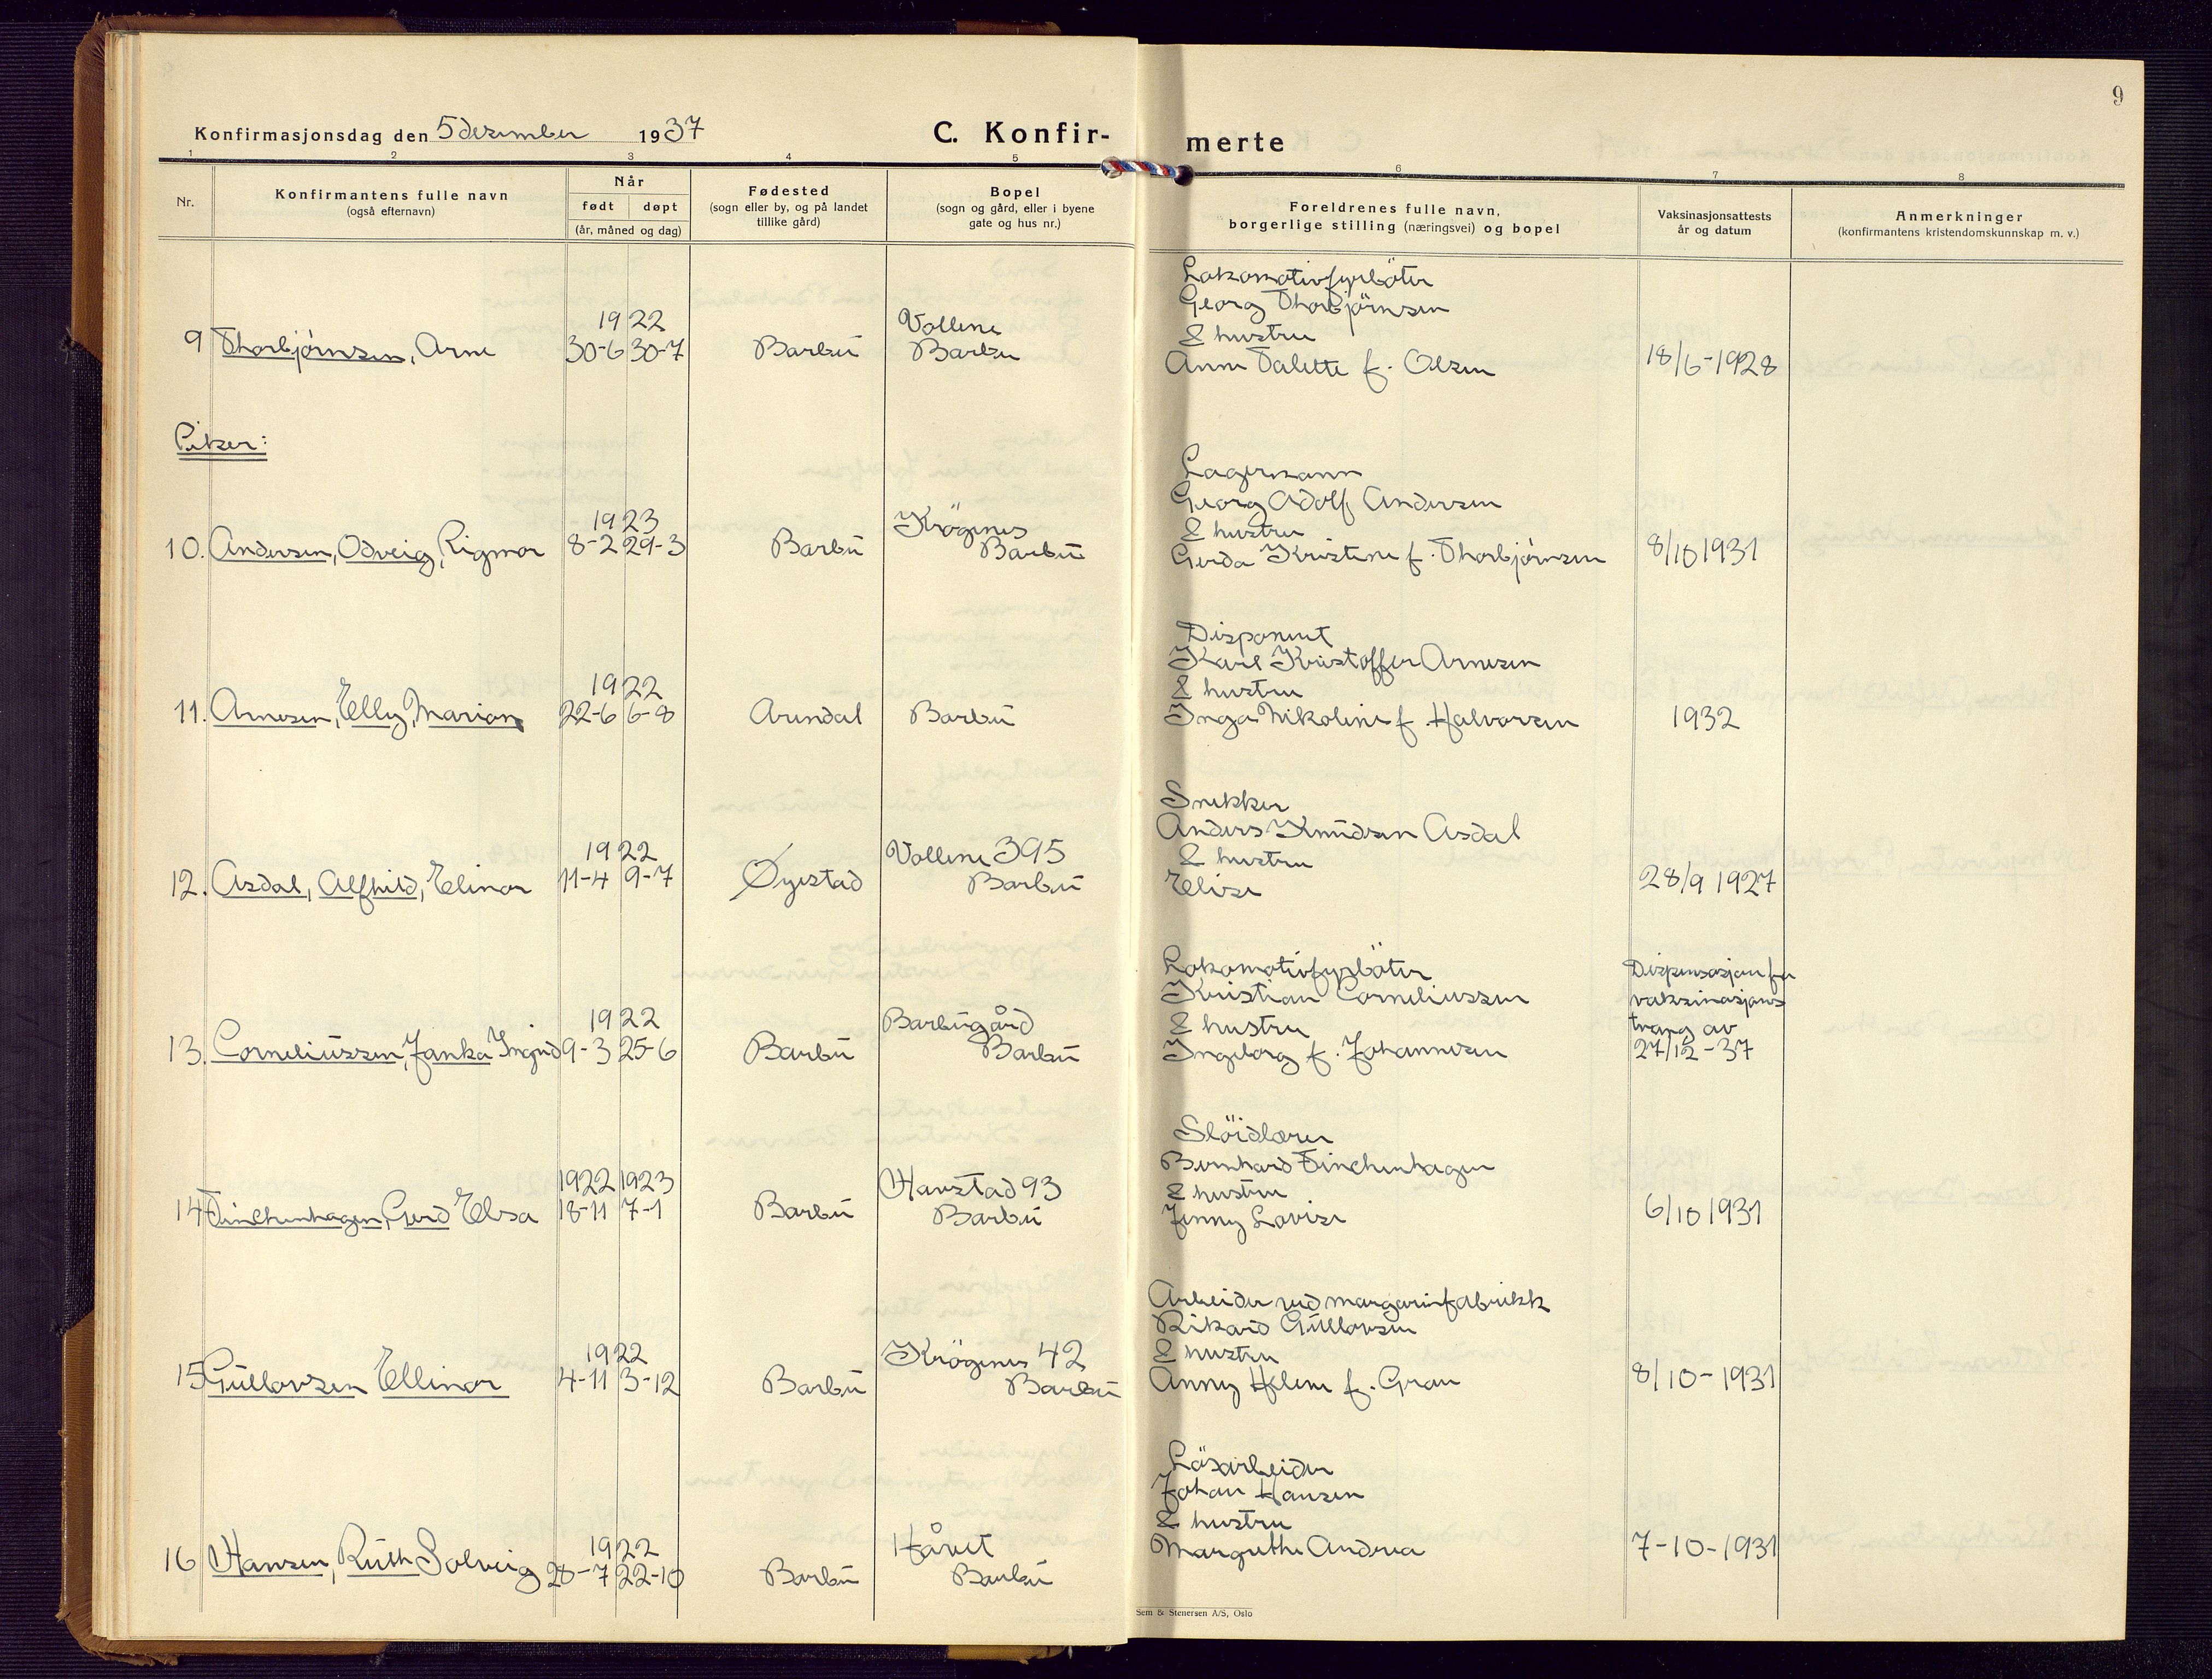 9
Konfirmasjonsdag den 5 desember 1937
C. Konfir-
merte
1 2 3 4 5 6 7 8
Nr.
Konfirmantens fulle navn
(også efternavn)
Når
født døpt
(år, måned og dag)
Fødested
(sogn eller by, og på landet
tillike gård)
Bopel
(sogn og gård, eller i byene
gate og hus nr.)
Foreldrenes fulle navn,
borgerlige stilling (næringsvei) og bopel
Vaksinasjonsattests
år og datum
Anmerkninger
(konfirmantens kristendomskunnskap m. v.)
Lokomotivfyrböter
Georg Thorbjörnsen
& hustru
Anne Talette f. Olsen
1922
Vollene
9 Thorbjörnsen, Arne 30-6 30-7 Barbu Barbu 18/6-1928
Piker:
Lagermann
Georg Adolf Andersen
& hustru
Gerda Kristine f. Thorbjörnsen
1923
Krögenes
10. Andersen, Odveig, Rigmor 8-2 29-3 Barbu Barbu 8/10 1931
Disponent
Karl Kristoffer Arnesen
& hustru
Inga Nikoline f. Halvorsen
1922
11. Arnesen, Elly, Marion 22-6 6-8 Arendal Barbu 1932
Snekker
Anders Knudsen Asdal
& hustru
Elise
1922
Vollene 395
12. Asdal, Alfhild, Elinor 11-4 9-7 Øyestad Barbu 28/9 1927
Lokomotivfyrböter
Kristian Corneliussen
& hustru
Ingeborg f. Johannesen
Dispensasjon fra
vaksinasjons
tvang av
27/12-37
1922
Barbugård
13. Corneliussen, Janka Ingrid 9-3 25-6 Barbu Barbu
Slöidlærer
Bernhard Finchenhagen
& hustru
Jenny Lovise
1922 1923
Harstad 93
14 Finchenhagen, Gerd Elsa 18-11 7-1 Barbu Barbu 6/10 1931
Arbeider ved margarinfabrikk
Rikard Gullovsen
& hustru
Anny Helene f. Gran
1922
Krögenes 42
15 Gullovsen Ellinor 4-11 3-12 Barbu Barbu 8/10-1931
Lösarbeider
Johan Hansen
& hustru
Margrethe Andrea
1922
Håvet
16 Hansen, Ruth Solveig 28-7 22-10 Barbu Barbu 7-10-1931
Sem & Stenersen A/S, Oslo